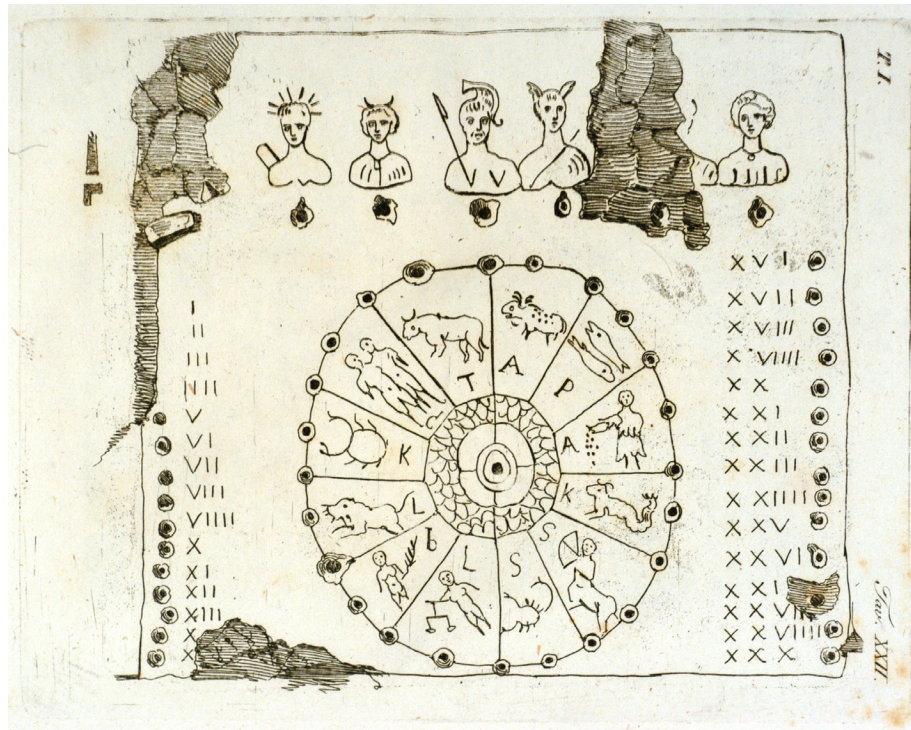 T. I.
I
II
III
IIII
V
VI
VII
VIII
VIIII
X
XI
XII
XIII
X
X
T
A
P
A
K
S
S
L
b
L
K
XVI
XVII
XVIII
XVIIII
XX
XXI
XXII
XXIII
XXIIII
XXV
XXVI
XXI
XXVIII
XXVIIII
XXX
Tav. XXII